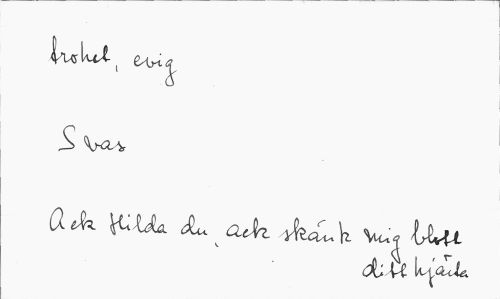 trohet, evig
S vas
Ack Hilda du, ack skänk mig blott
ditt hjärta